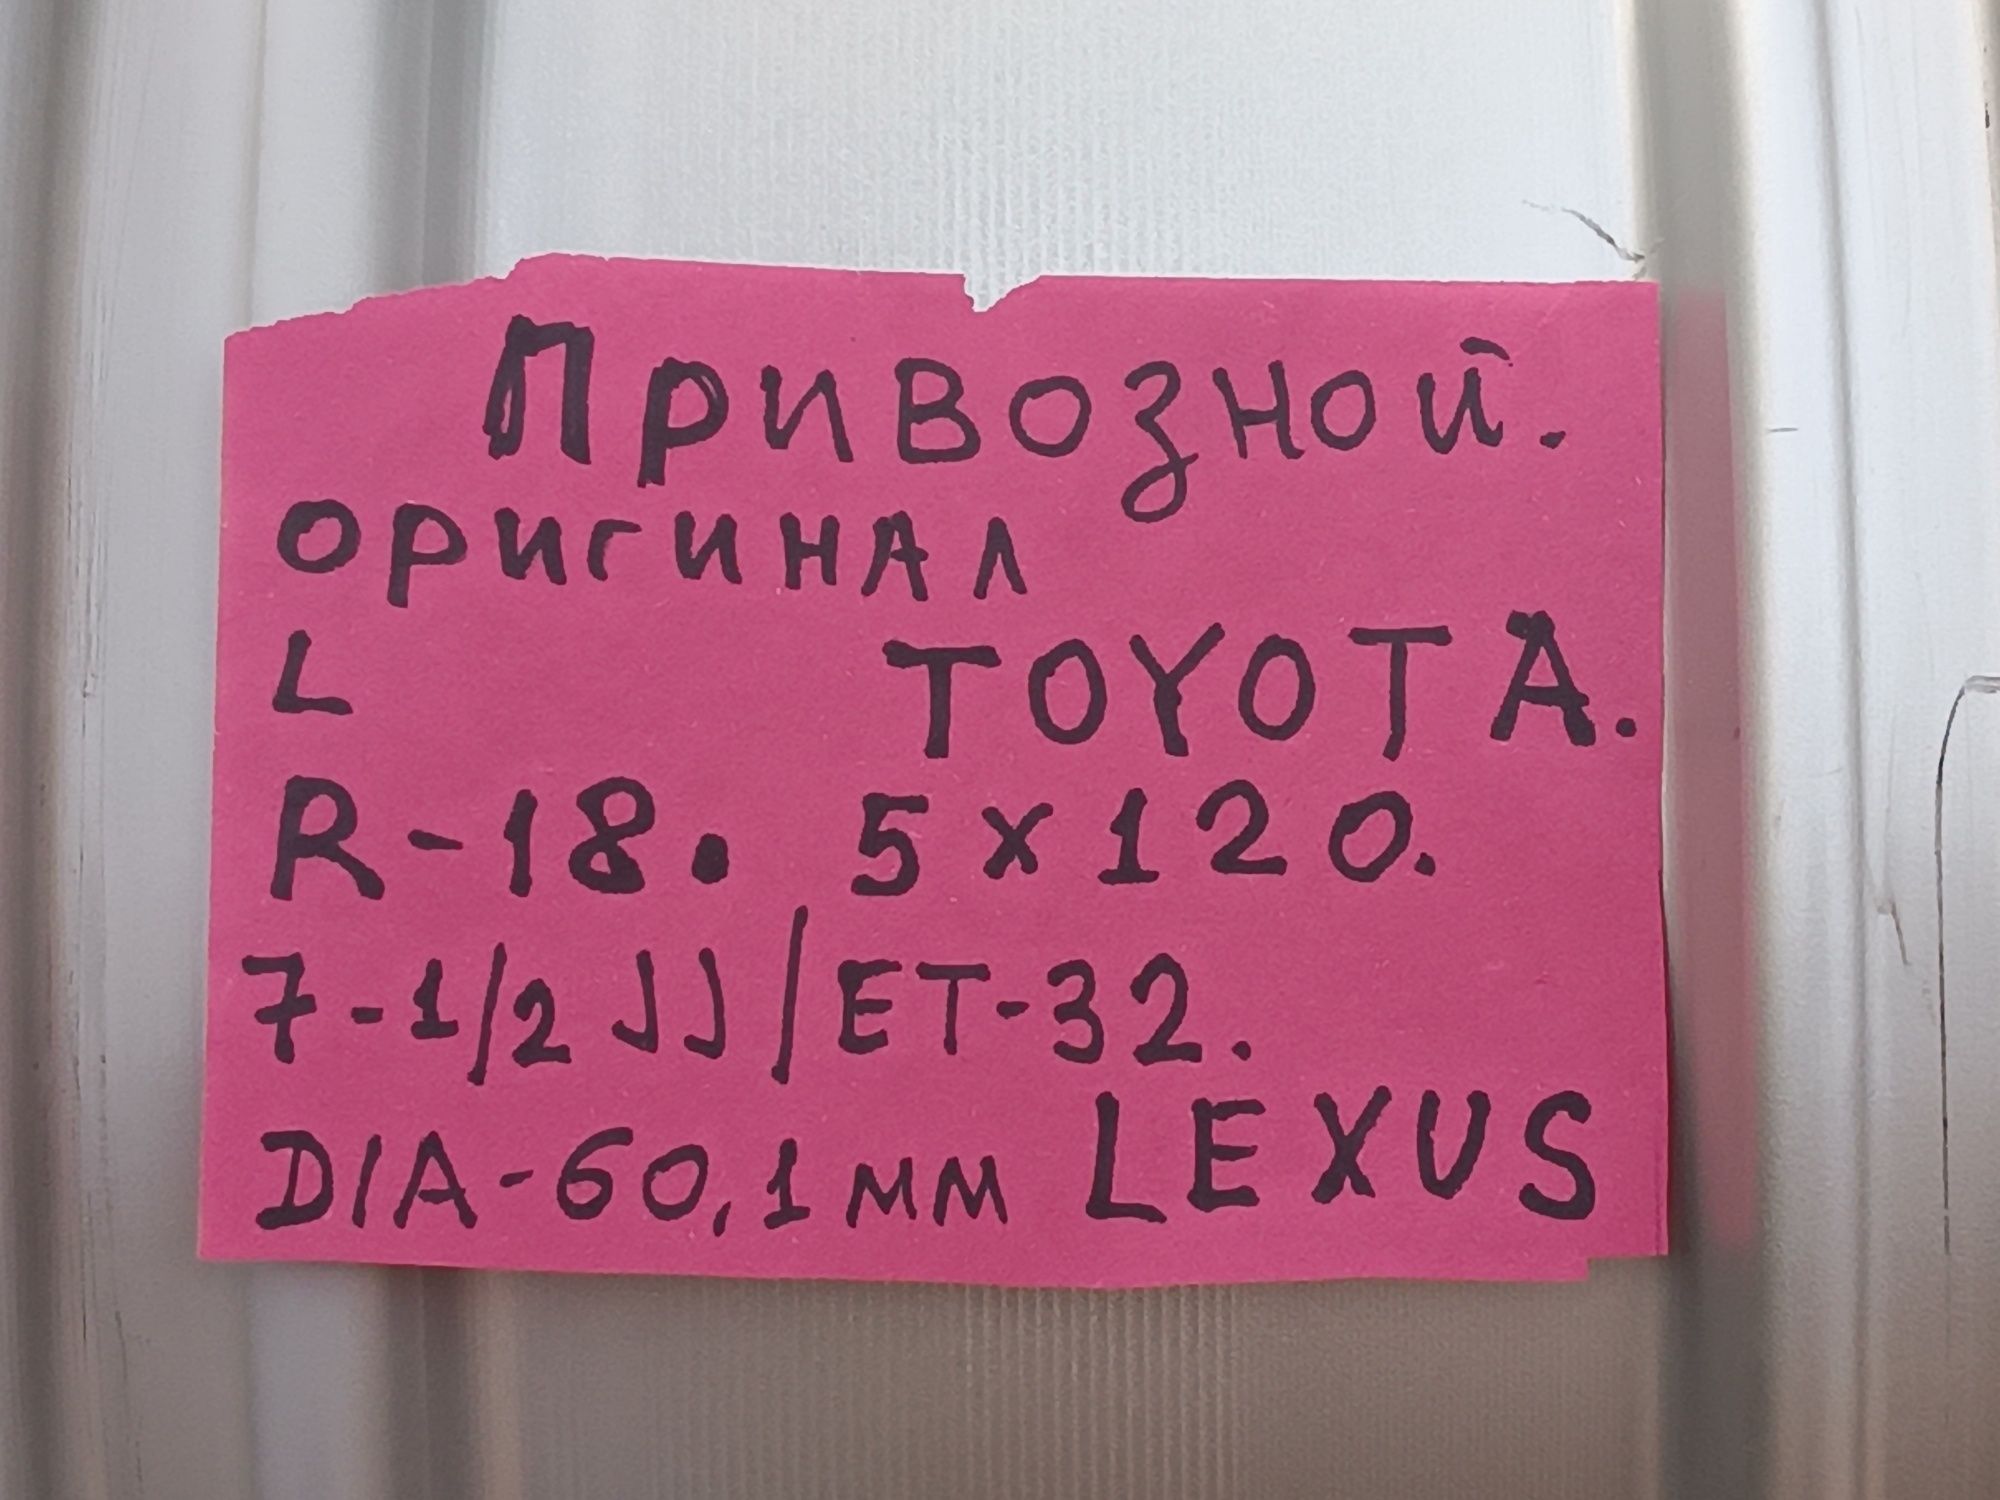 Привозной.
оригинал
L TOYOTA.
R-18. 5x120.
7-1/2 JJ/ET-32.
DIA-60,1мм LEXUS